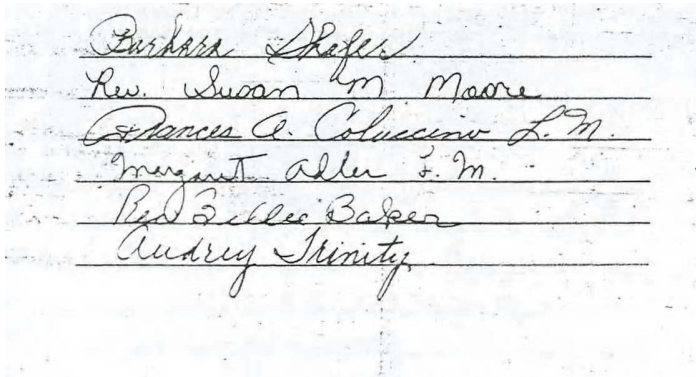 Barbara Shafer
Rev. Susan M. Moore
Frances A. Coluccino L.M.
Margaret Adler L.M.
Rev Billee Baker
Audrey Trinity